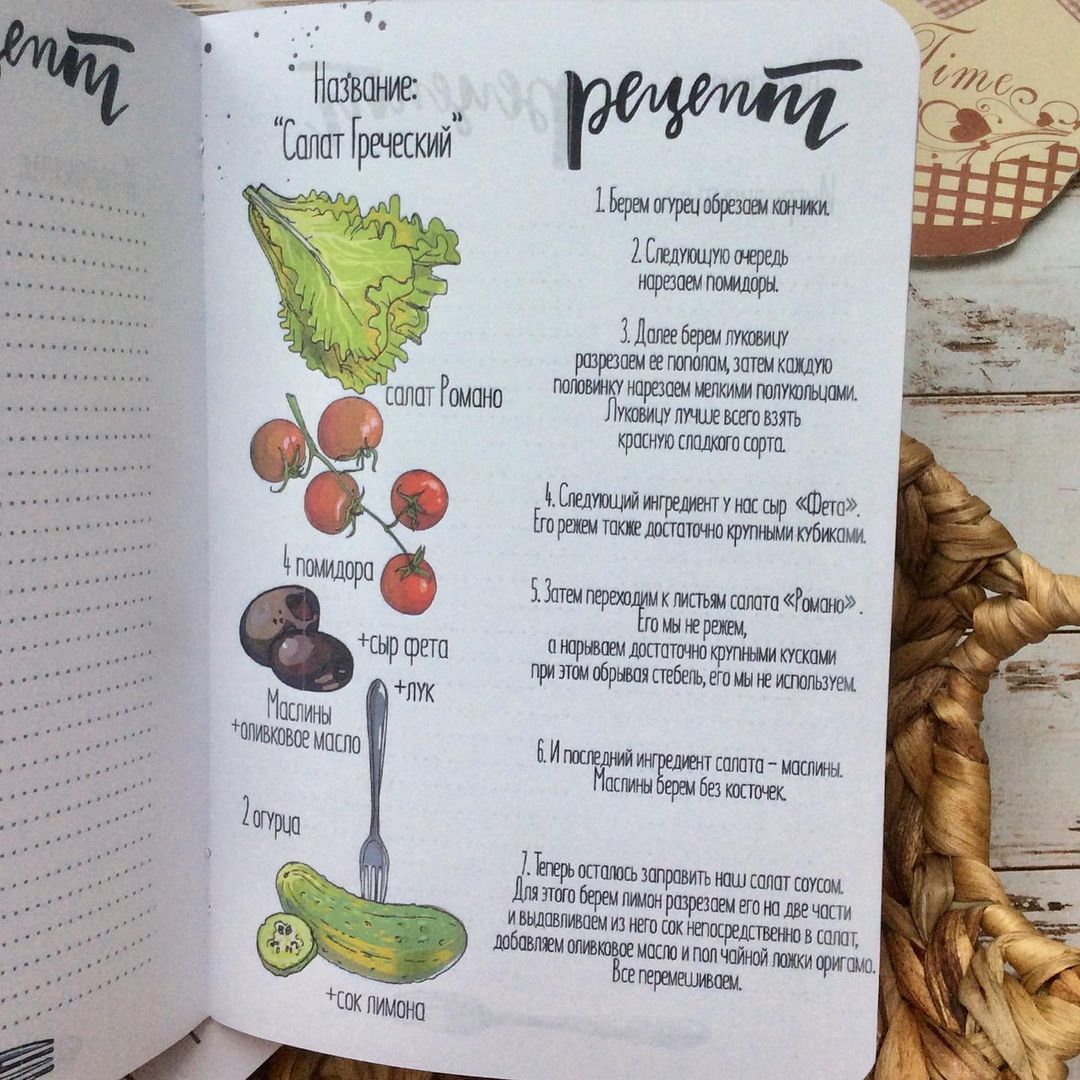 рецепт
Название:
“Салат Греческий”
салат Романо
4 помидора
+сыр фета
+лук
Маслины
+оливковое масло
2 огурца
+сок лимона
рецепт
1. Берем огурец обрезаем кончики.
2. Следующую очередь
нарезаем помидоры.
3. Далее берем луковицу
разрезаем ее пополам, затем каждую
половинку нарезаем мелкими полукольцами.
Луковицу лучше всего взять
красную сладкого сорта.
4. Следующий ингредиент у нас сыр «Фета».
Его режем также достаточно крупными кубиками.
5. Затем переходим к листьям салата «Романо» .
Его мы не режем,
а нарываем достаточно крупными кусками
при этом обрывая стебель, его мы не используем.
6. И последний ингредиент салата – маслины.
Маслины берем без косточек.
7. Теперь осталось заправить наш салат соусом.
Для этого берем лимон разрезаем его на две части
и выдавливаем из него сок непосредственно в салат,
добавляем оливковое масло и пол чайной ложки оригама.
Все перемешиваем.
Time